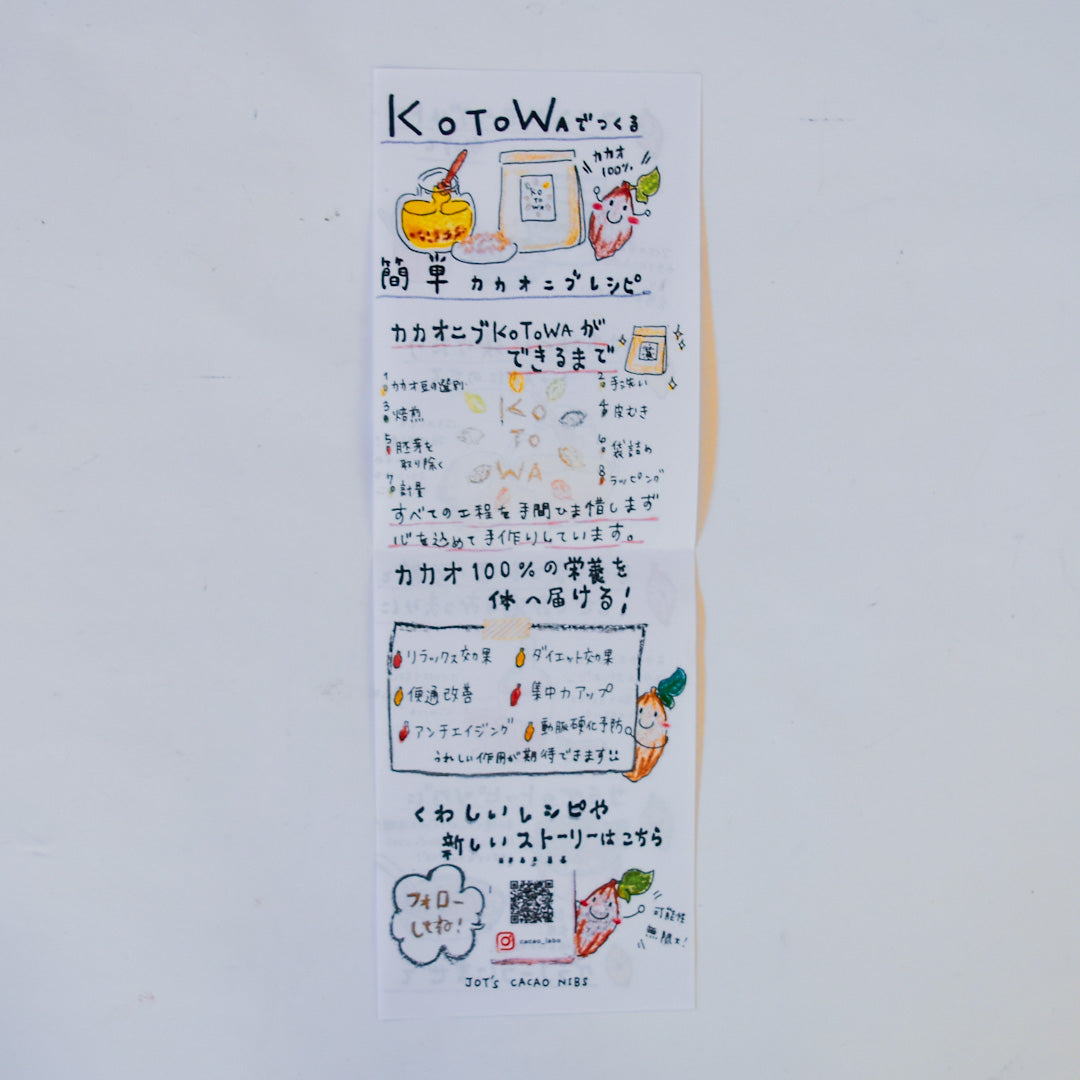 KOTOWAでつくる
カカオ
100%
KO
TO
WA
簡単 カカオニブレシピ
カカオニブKOTOWAが
できるまで
1 カカオ豆の選別
2 手洗い
3 焙煎
4 皮むき
5 胚芽を
取り除く
6 袋詰め
7 計量
8 ラッピング
KO
TO
WA
すべての工程を手間ひま惜しまず
心を込めて手作りしています。
カカオ100%の栄養を
体へ届ける!
リラックス効果
ダイエット効果
便通改善
集中力アップ
アンチエイジング
動脈硬化予防
うれしい作用が期待できます
くわしいレシピや
新しいストーリーはこちら
フォロー
してね!
cacao_labo
可能性
無限大!
JOT'S CACAO NIBS